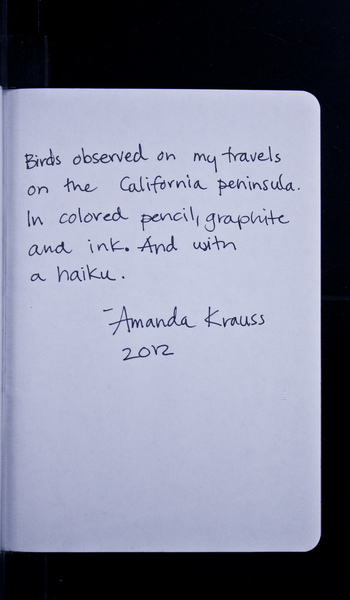 Birds observed on my travels
on the California peninsula.
In colored pencil, graphite
and ink. And with
a haiku.
-Amanda Krauss
2012